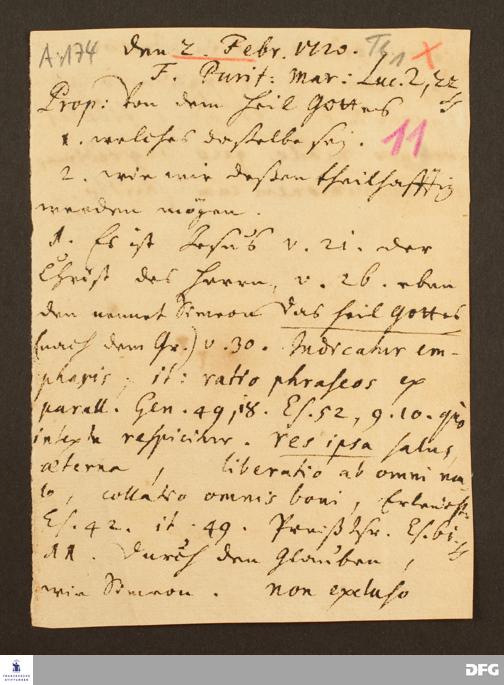 A:174 den 2. Febr. 1720. 
F. Purif: Mar: Luc. 2, 22
Prop: Von dem Heil Gottes
1. welches dasselbe sej. 11
2. wie wir deßen theilhafftig
werden mögen.
1. Es ist Jesus v. 21. der
Christ des Herrn, v. 26. eben
den nennet Simeon das Heil Gottes
(nach dem Gr.) v. 30. Indicatur em-
phasis, it: ratio phraseos ex
parall. Gen. 49, 18. Es. 52, 9. 10. quo
in textu respicitur. res ipsa salus
æterna, liberatio ab omni ma-
lo, collatio omnis boni,
Es. 42. it. 49. Es. 61.
durch den Glauben,
wie Simeon. non excluso
FRANCKESCHE
STIFTUNGEN
DFG